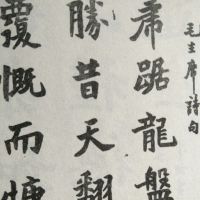 毛主席詩句
虎踞龍盤
勝昔天翻
覆慨而慷